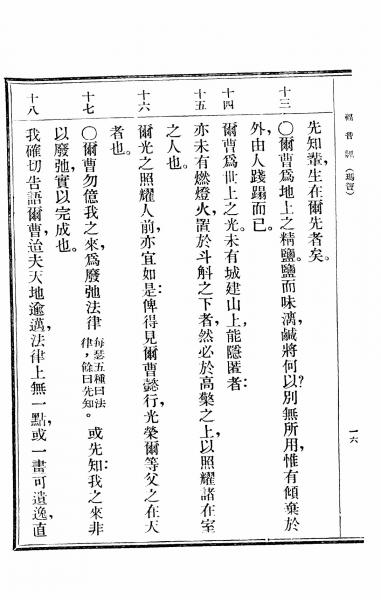 福音訊（瑪竇）
一六
先知輩，生在爾先者矣。
十三 〇爾曹爲地上之精鹽。鹽而味漓，鹹將何以？別無所用，惟有傾棄於
外，由人踐蹋而已。
十四 爾曹爲世上之光。未有城建山上，能隱匿者：
十五 亦未有燃燈火，置於斗斛之下者，然必於高檠之上，以照耀諸在室
之人也。
十六 爾光之照耀人前，亦宜如是：俾得見爾曹懿行，光榮爾等父之在天
者也。
十七 〇爾曹勿億我之來，爲廢弛法律 每瑟五種曰法律，餘曰先知。 或先知：我之來非
以廢弛，實以完成也。
十八 我確切告語爾曹，迨夫天地逾邁，法律上無一點，或一畫可遺逸，直